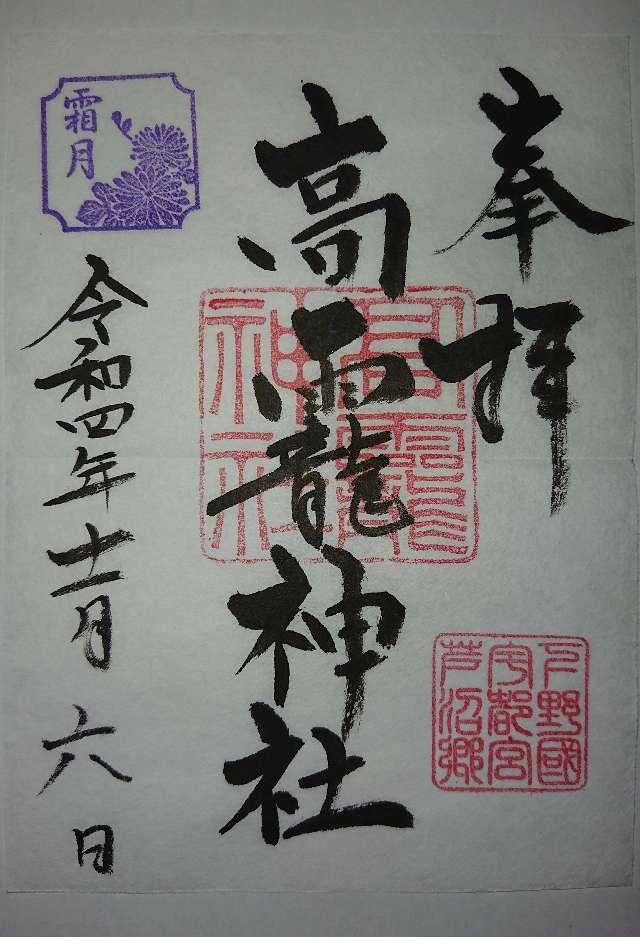 奉拝
高靇神社
高靇
神社
下野國
宇都宮
芦沼郷
霜月
令和四年十一月六日